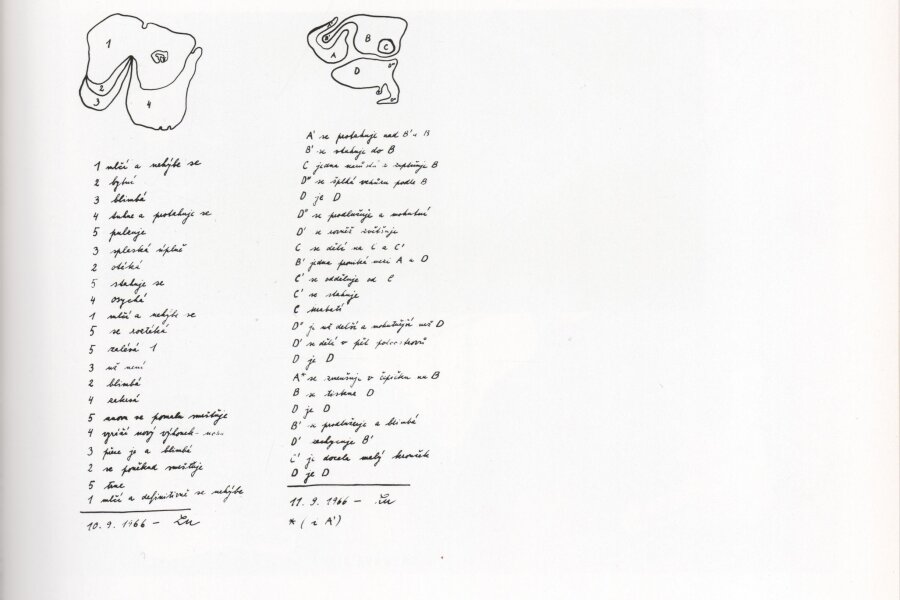 1
2
3
4
A
B
C
D
1 mlčí a nehýbe se
2 bytní
3 blimbá
4 tuhne a protahuje se
5 pulzuje
3 splaská úplně
2 otéká
5 stahuje se
4 osychá
1 mlčí a nehýbe se
5 se roztéká
5 zalévá 1
3 už není
2 blimbá
4
5 znova se pomalu smršťuje
4 vyráží nový výhonek
3 přece je a blimbá
2 se poněkud smršťuje
5 tuhne
1 mlčí a definitivně se nehýbe
10. 9. 1966 –
A' se protahuje nad B' a B
B' se stahuje do B
C jedna B
D" se šplhá vzhůru podle B
D je D
D" se prodlužuje a mohutní
D' se rovněž zvětšuje
C se dělí na C a C'
B' jedna proniká mezi A a D
C' se odděluje od C
C' se stahuje
C
D" je už delší a mohutnější než D
D' se dělí v pět poloostrovů
D je D
A* se zmenšuje v čepičku na B
B se tiskne D
D je D
B' se prodlužuje a blimbá
D' B'
C' je docela malý
D je D
11. 9. 1966 –
* (i A')